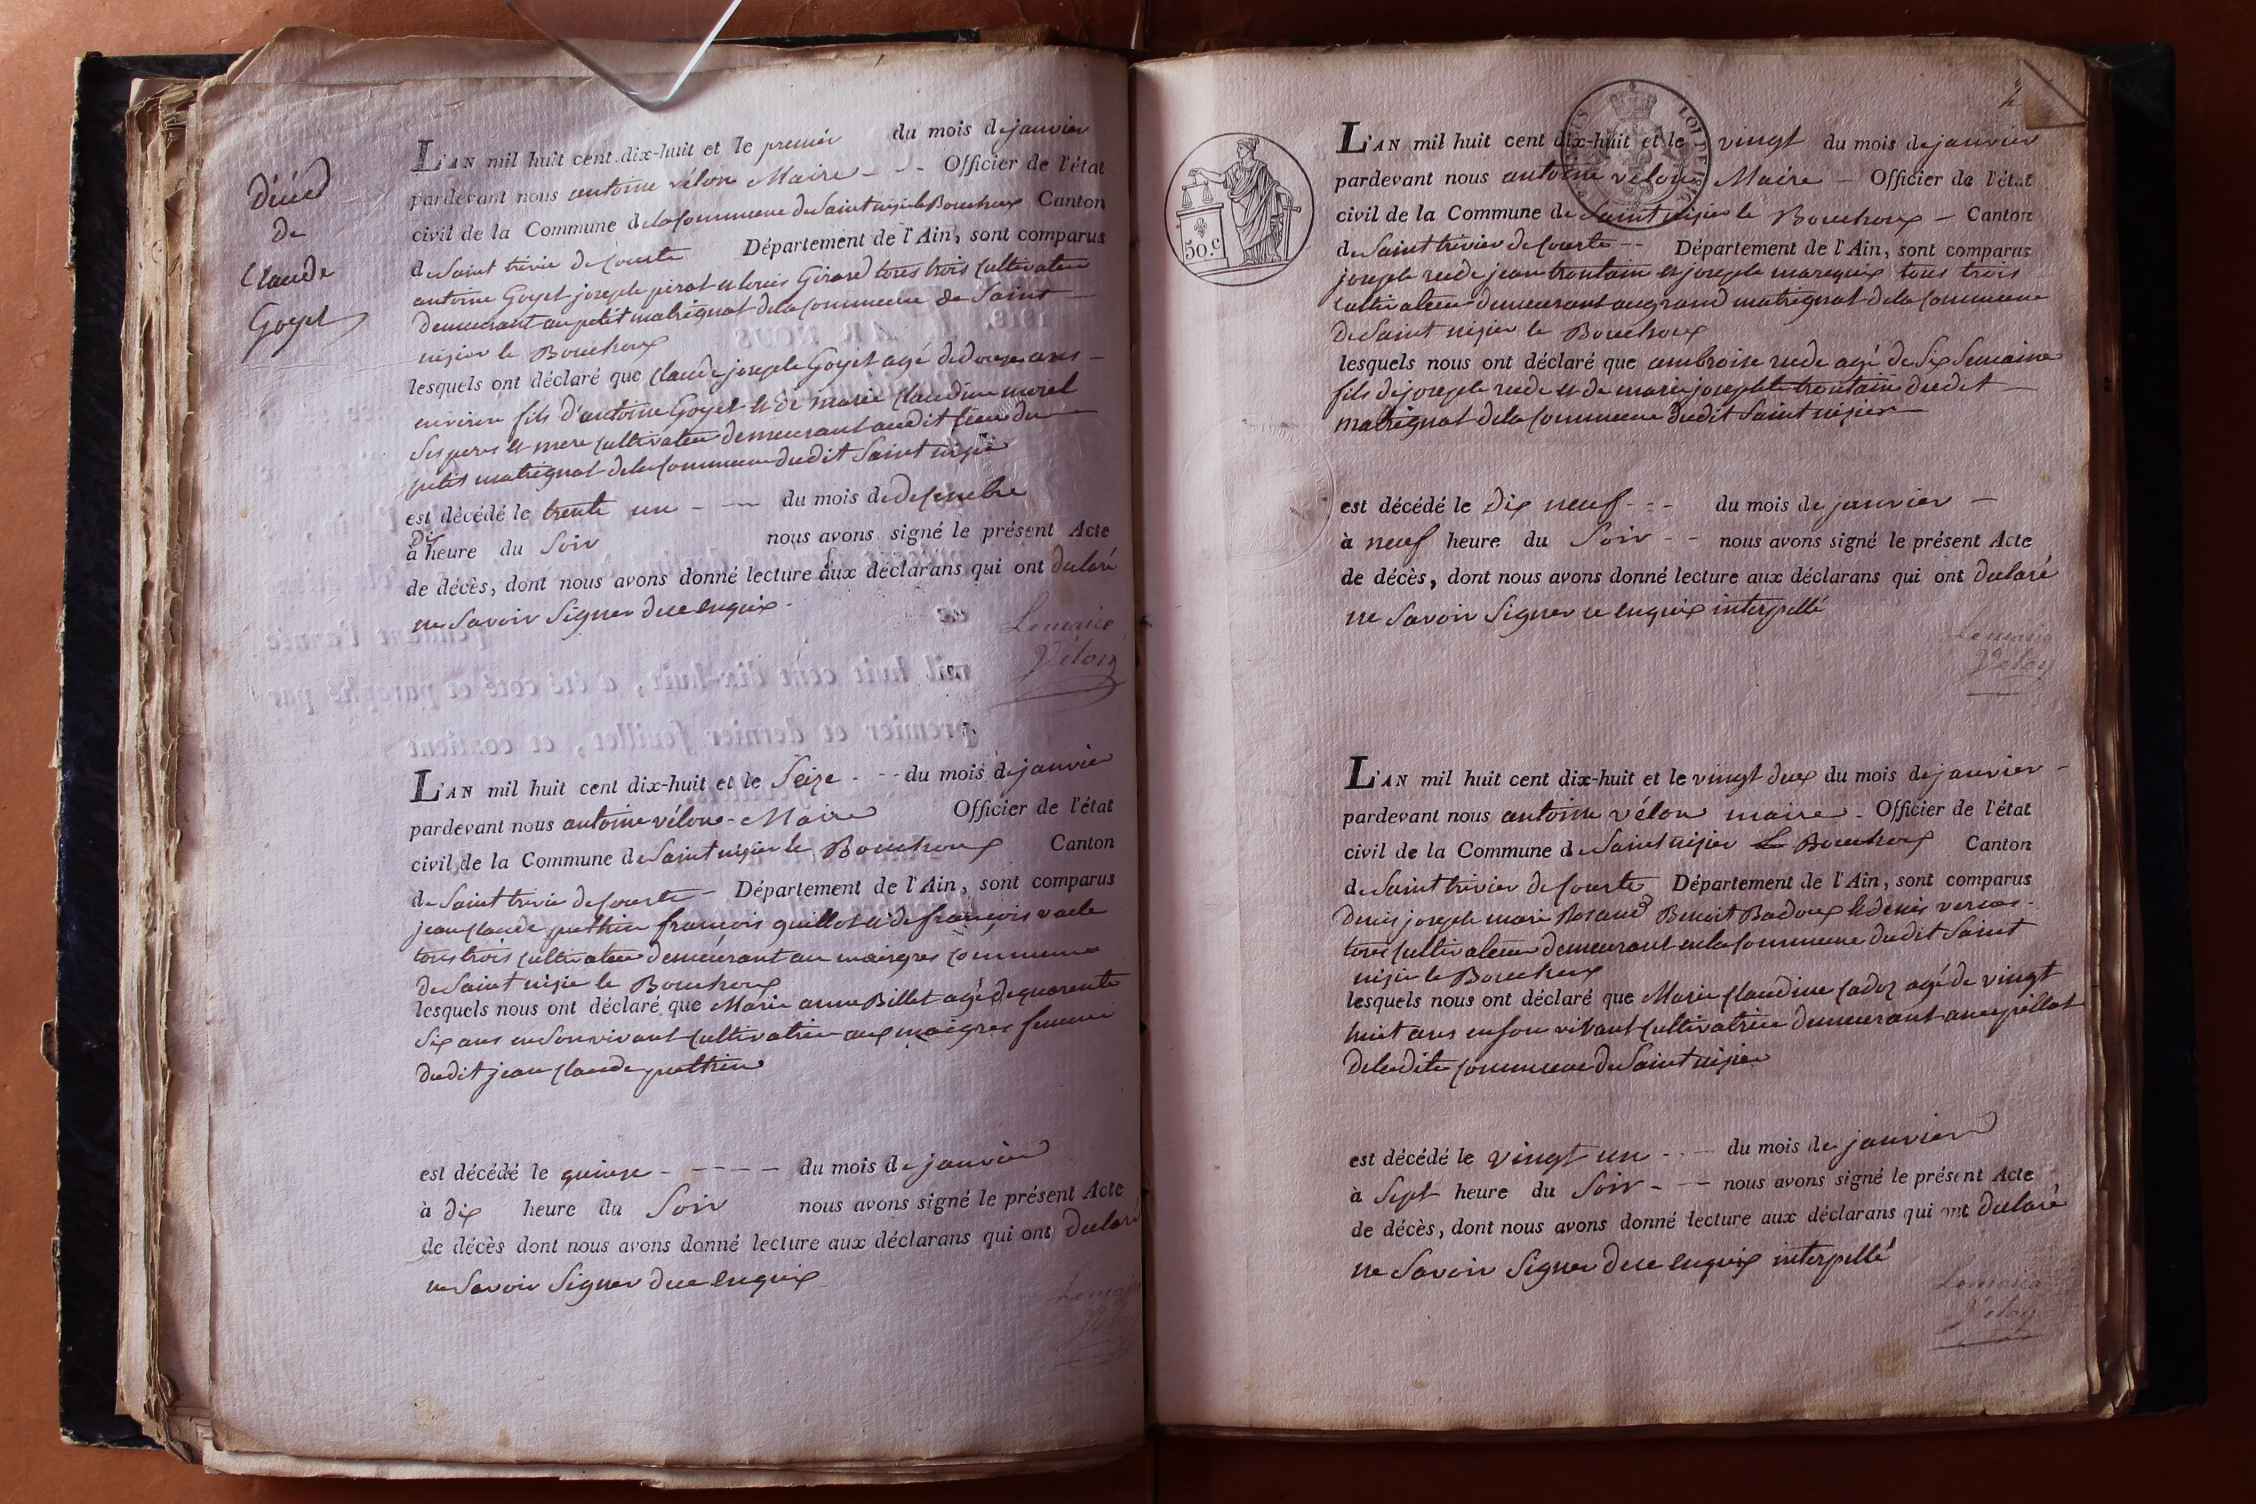 Décéd
de
Claude
Goyet
L'AN mil huit cent dix-huit et le premier du mois de janvier
pardevant nous antoine vélon Maire - - - Officier de l'état
civil de la Commune de la Commune de Saint nizier le Bouchoux Canton
de Saint trivié de Courte Département de l'Ain, sont comparus
antoine Goyet joseph perat et louis Girard tous trois Cultivateur
demeurant au petit matrignat de la Commune de Saint
nizier le Bouchoux
lesquels ont déclaré que Claude joseph Goyet agé de douze ans
environ fils d'antoine Goyet et de marie Claudine morel
Ses pere et mere Cultivateur demeurant audit lieu du
petit matrignat de la Commune dudit Saint nizié
est décédé le trente un - - du mois de decembre
à Dix heure du Soir nous avons signé le présent Acte
de décès, dont nous avons donné lecture aux déclarans qui ont declaré
ne Savoir Signer de ce enquix.
Lemaire
Vélon
L'AN mil huit cent dix-huit et le Seize - - du mois de janvier
pardevant nous antoine vélon - Maire Officier de l'état
civil de la Commune de Saint nizier le Bouchoux Canton
de Saint trivié de Courte - Département de l'Ain, sont comparus
jean Claude puthin françois guillot et françois vacle
tous trois Cultivateur demeurant au maigres Commune
de Saint nizié le Bouchoux
lesquels nous ont déclaré que Marie anne Billet agé de quarente
Six ans en Son vivant Cultivatrice aux maigres femme
dudit jean Claude puthin
est décédé le quinze - - - - du mois de janvier
à dix heure du Soir nous avons signé le présent Acte
de décès dont nous avons donné lecture aux déclarans qui ont declaré
ne Savoir Signer de ce enquix
Lemaire
2
50.c
LOI DE 1816
L'AN mil huit cent dix-huit et le vingt du mois de janvier
pardevant nous antoine vélon Maire - Officier de l'état
civil de la Commune de Saint nizier le Bouchoux - Canton
de Saint trivier de Courte - - Département de l'Ain, sont comparus
joseph rude jean troutain et joseph marequix tous trois
Cultivateur demeurant au grand matrignat de la Commune
de Saint nizier le Bouchoux
lesquels nous ont déclaré que ambroise rude agé de Six Semaine
fils de joseph rude et de marie josephte troutain dudit
matrignat de la Commune dudit Saint nizier
est décédé le Dix neuf - - - du mois de janvier -
à neuf heure du Soir - - nous avons signé le présent Acte
de décès, dont nous avons donné lecture aux déclarans qui ont declaré
ne Savoir Signer ce enquix interpellé
Lemaire
Velon
L'AN mil huit cent dix-huit et le vingt deux du mois de janvier -
pardevant nous antoine vélon maire - Officier de l'état
civil de la Commune de Saint nizier le Bouchoux Canton
de Saint trivier de Courte Département de l'Ain, sont comparus
Denis joseph marie Rosand Benoit Badoux et denis
tous Cultivateur demeurant en la Commune dudit Saint
nizié le Bouchoux
lesquels nous ont déclaré que Marie Claudine Cadoz agé de vingt
huit ans en son vivant Cultivatrice demeurant au
de ladite Commune de Saint nizier
est décédé le vingt un - - - du mois de janvier
à Sept heure du Soir - - - nous avons signé le présent Acte
de décès, dont nous avons donné lecture aux déclarans qui ont declaré
ne Savoir Signer de ce enquix interpellé
Lemaire
Velon